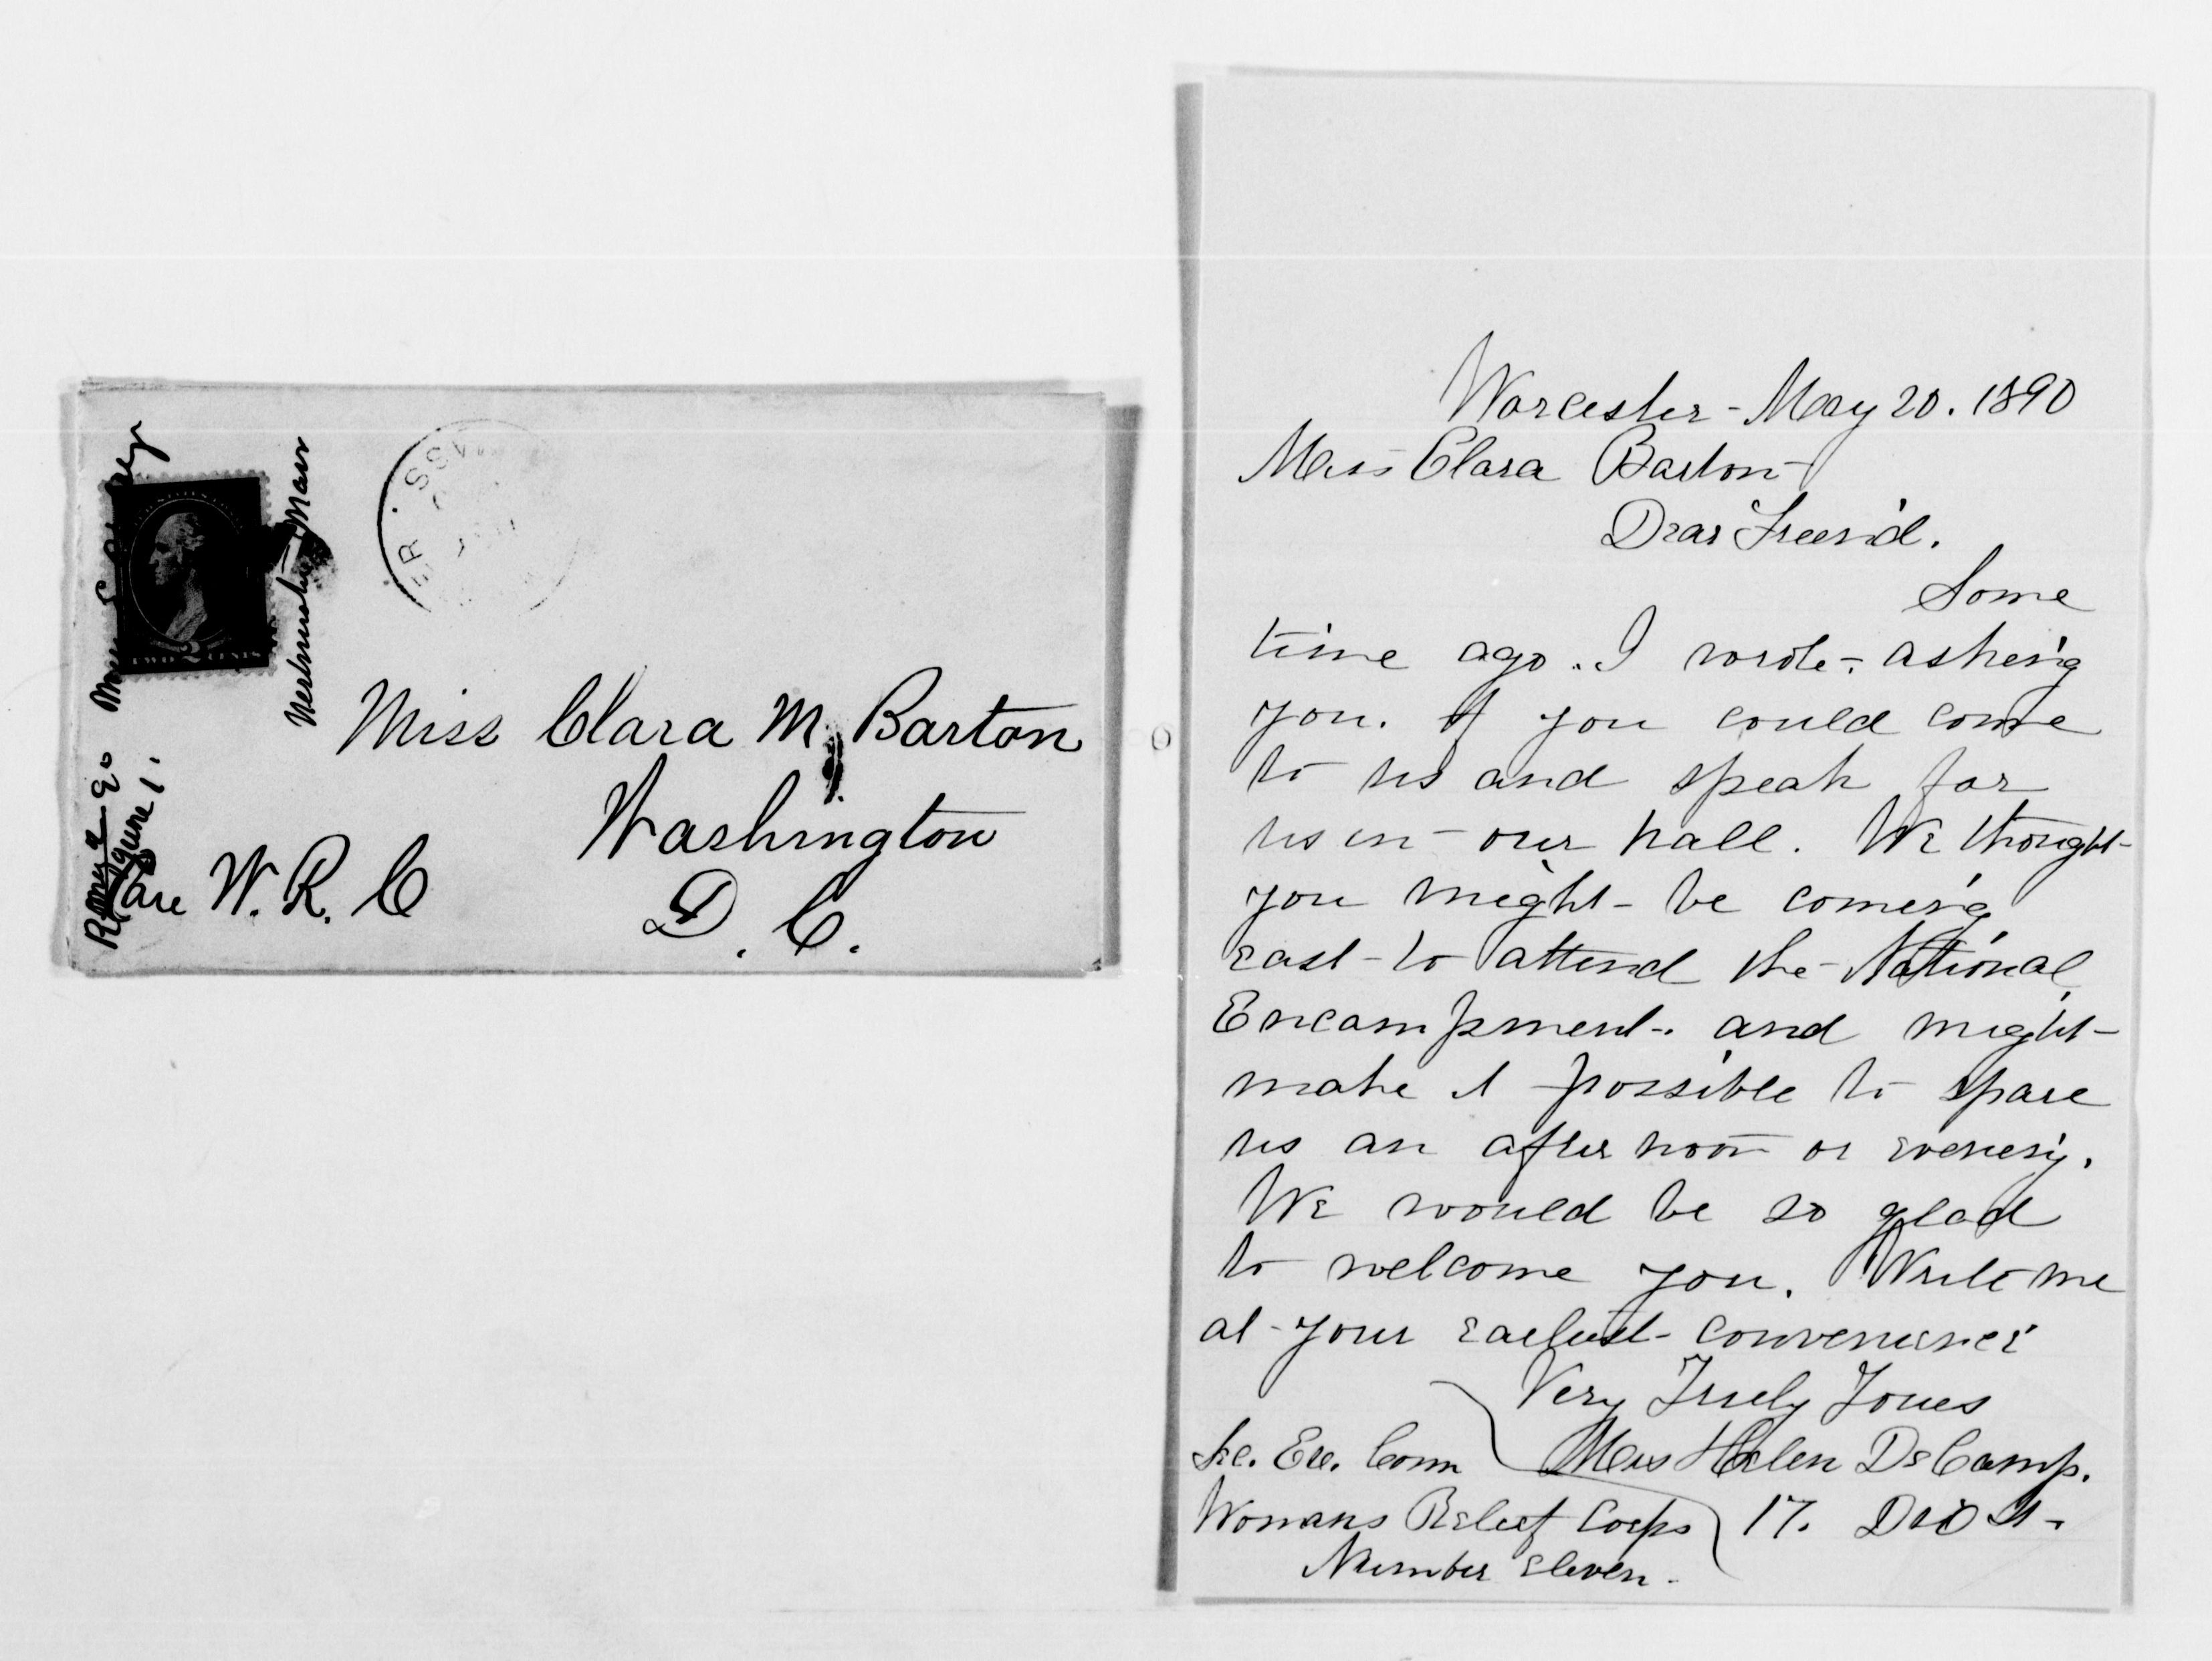 Miss Clara M. Barton
Washington
D. C.
Care W. R. C
Westminster Mass
June 1.
90
TWO 2 CENTS
ER. MASS
Worcester - May 20. 1890
Miss Clara Barton
Dear Friend.
Some
time ago. I wrote - asking
you. if you could come
to us and speak for
us in - our hall. We thought -
you might - be coming
east - to attend the - National
Encampment -. and might -
make it possible to spare
us an after noon or evening.
We would be so glad
to welcome you. Write me
at - your earliest - convenience
Very Truly Yours
Sec. Exe. Comm Mrs Helen DeCamp.
Womans Relief Corps 17. Dix St -
Number Eleven -